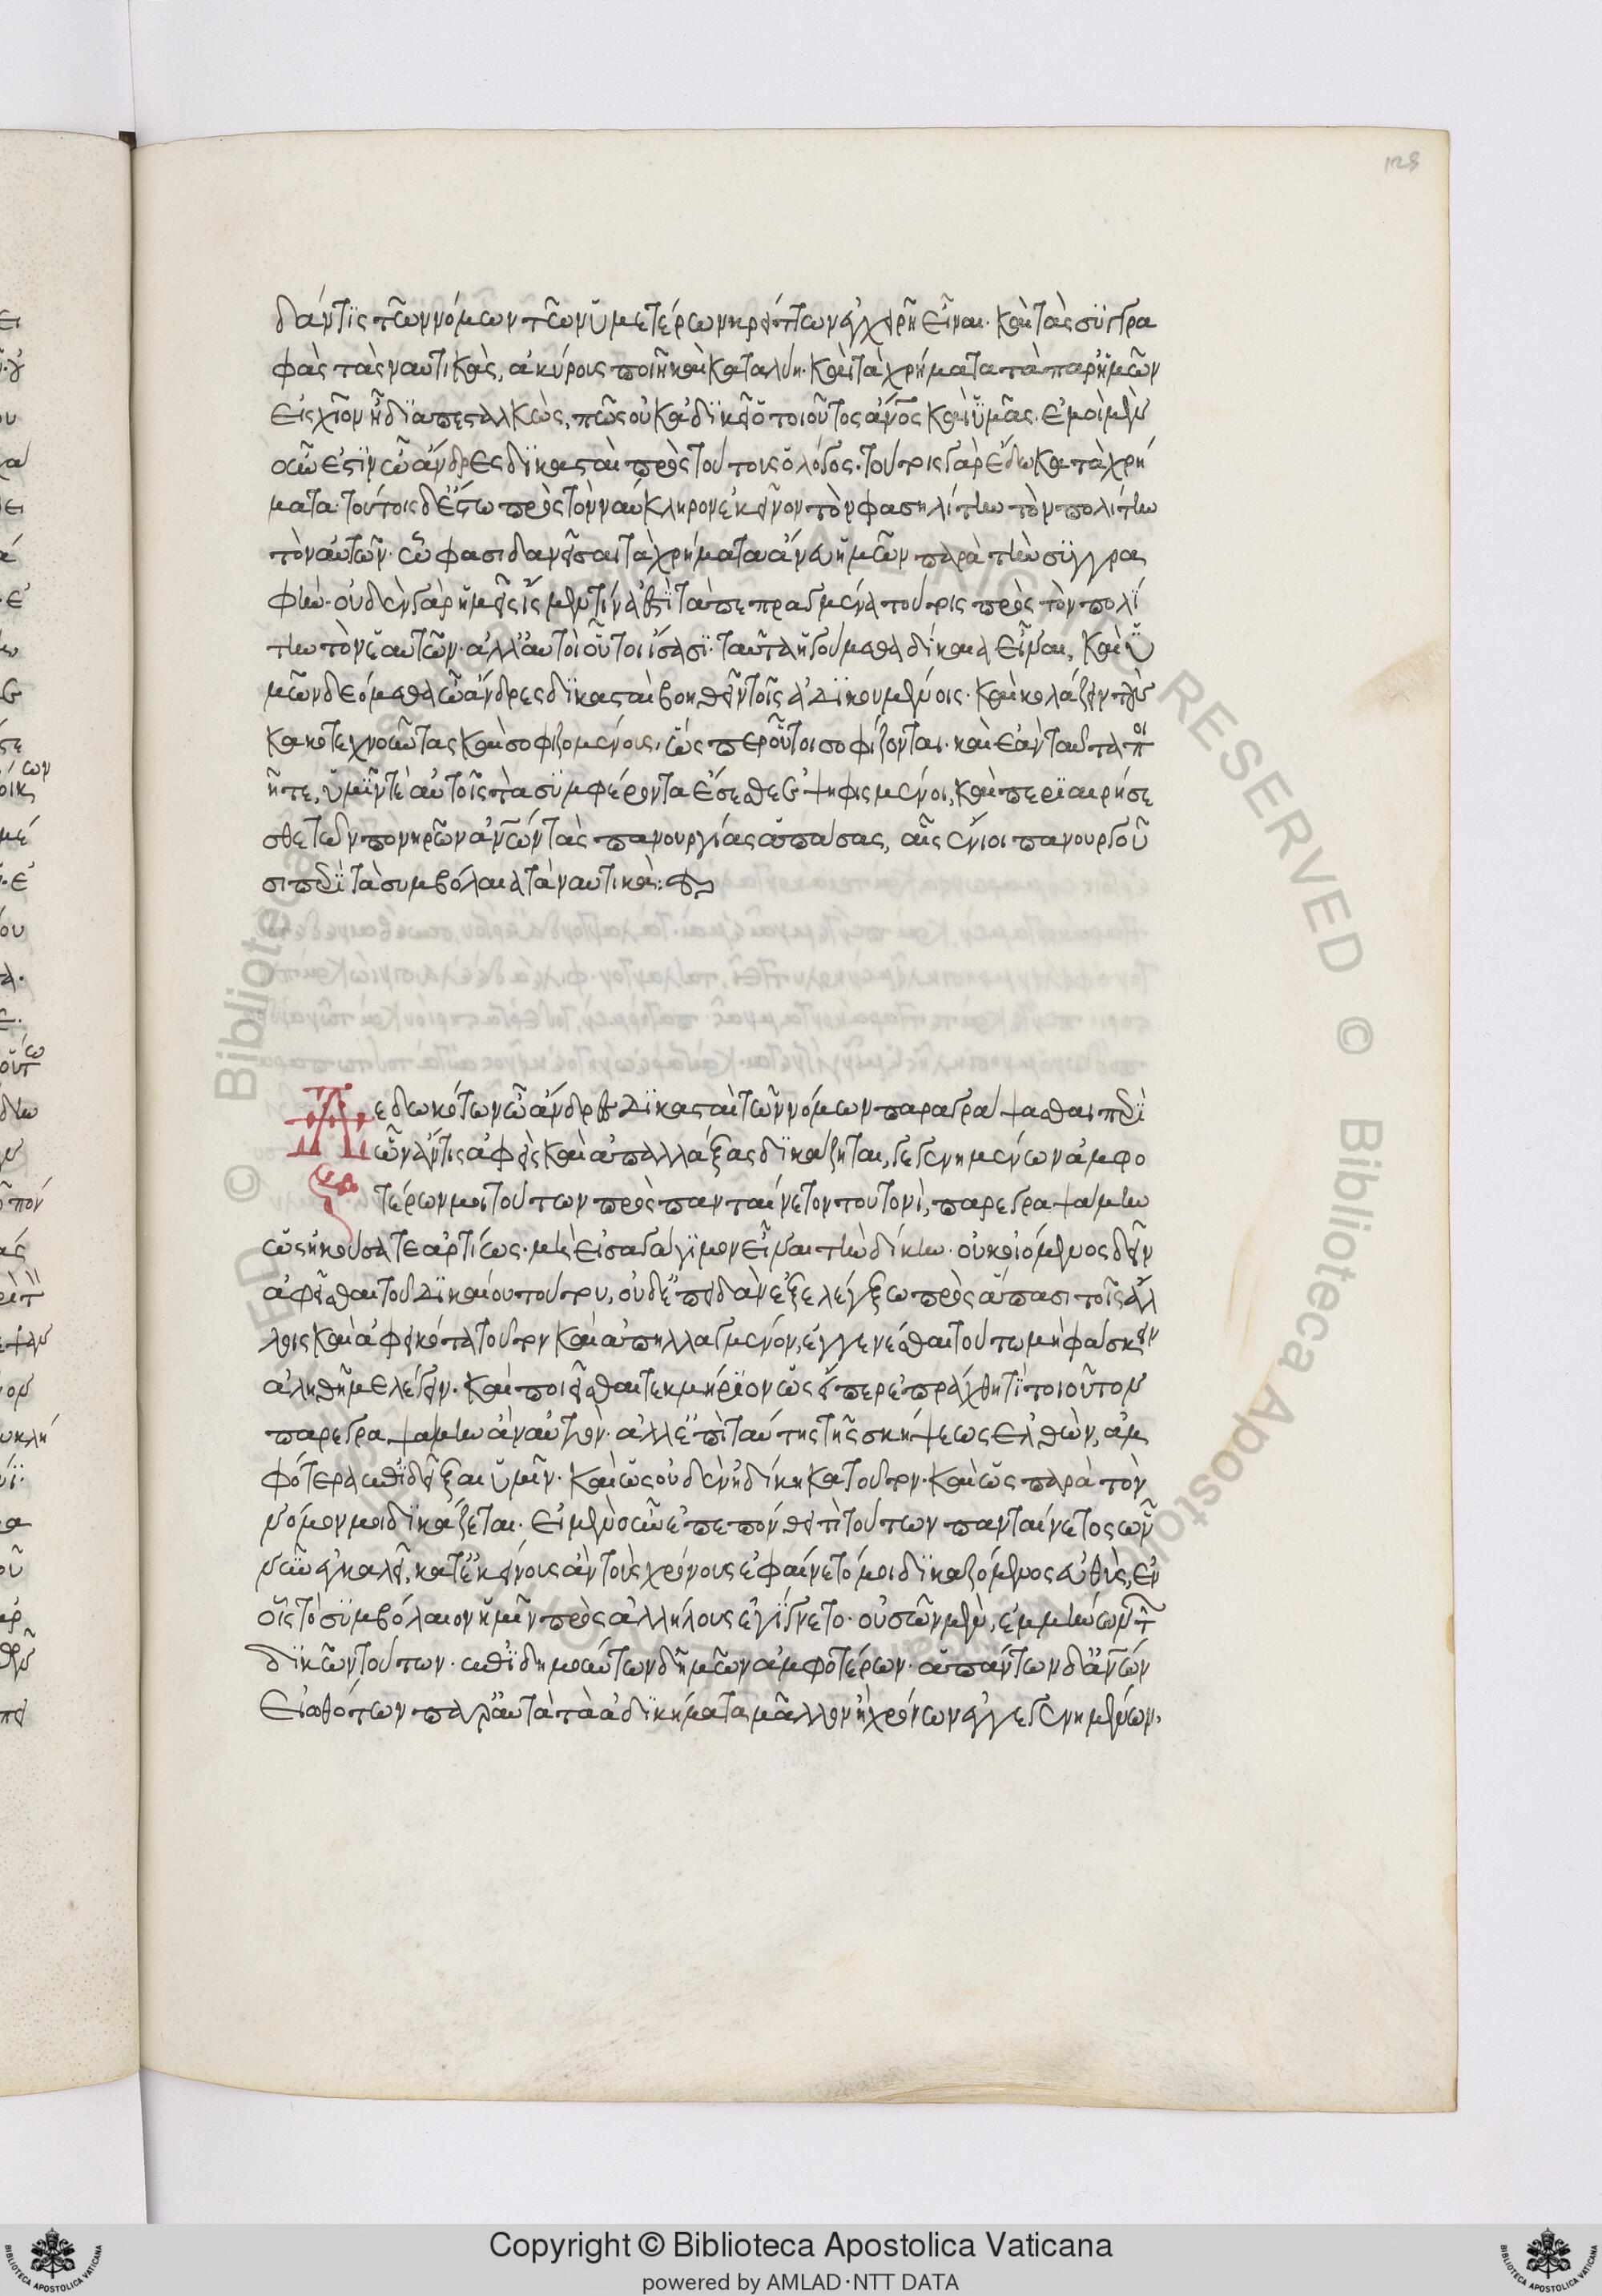 128
δάν τις τῶν νόμων τῶν ὑμετέρων κρείττων ἐγχειρῆ εἶναι. καὶ τὰς συγγρα
φὰς τὰς ναυτικὰς, ἀκύρους ποιῆ καὶ καταλύη. καὶ τὰ χρήματα τὰ παρ' ἡμῶν
εἰς χῖον ἦ διαπεσταλκὼς, πῶς οὐκ ἀδικεῖ ὁ τοιοῦτος ἄνος καὶ ὑμᾶς. ἐμοὶ μὲν
οὖν ἐστὶν ὦ ἄνδρες δικασταὶ πρὸς τούτους ὁ λόγος. τούτοις γὰρ ἔδωκα τὰ χρή
ματα. τούτοις δ' ἔστω πρὸς τὸν ναύκληρον ἐκεῖνον τὸν φασηλίτην τὸν πολίτην
τὸν αὑτῶν. ὧ φασι δανεῖσαι τὰ χρήματα ἄνευ ἡμῶν παρὰ τὴν συγγρα
φήν. οὐδὲν γὰρ ἡμεῖς ἴσμεν τίνα ἐστὶ τὰ πεπραγμένα τούτοις πρὸς τὸν πολί
την τὸν ἑαυτῶν. ἀλλ' αὐτοὶ οὗτοι ἴσασι. ταῦτα ἡγούμεθα δίκαια εἶναι, καὶ ὑ
μῶν δεόμεθα ὦ ἄνδρες δικασταὶ βοηθεῖν τοῖς ἀδικουμένοις. καὶ κολάζειν τοὺς
κακοτεχνοῦντας καὶ σοφιζομένους, ὥσπερ οὗτοι σοφίζονται. καὶ ἐὰν ταῦτα ποι
ῆτε, ὑμῖν τὲ αὐτοῖς τὰ συμφέροντα ἔσεσθε ἐψηφισμένοι, καὶ περιαιρήσε
σθε τῶν πονηρῶν ἀνῶν τὰς πανουργίας ἁπάσας, αἷς ἔνιοι πανουργοῦ
σι περὶ τὰ συμβόλαια τὰ ναυτικὰ:
Δεδωκότων ὦ ἄνδρες δικασταὶ τῶν νόμων παραγράψασθαι περὶ
ὧν ἄν τις ἀφεὶς καὶ ἀπαλλάξας δικάζηται, γεγενημένων ἀμφο
τέρων μοι τούτων πρὸς πανταίνετον τουτονὶ, παρεγραψάμην
ὡς ἠκούσατε ἀρτίως. μὴ εἰσαγώγιμον εἶναι τὴν δίκην. οὐκ οἰόμενος δεῖν
ἀφεῖσθαι τοῦ δικαίου τούτου, οὐδ' ἐπειδὰν ἐξελέγξω πρὸς ἅπασι τοῖς ἄλ
λοις καὶ ἀφεικότα τοῦτον καὶ ἀπηλλαγμένον, ἐγγενέσθαι τούτω μὴ φάσκειν
ἀληθῆ με λέγειν. καὶ ποιεῖσθαι τεκμήριον ὡς εἴπερ ἐπράχθη τὶ τοιοῦτον
παρεγραψάμην ἂν αὐτὸν. ἀλλ' ἐπὶ ταύτης τῆς σκήψεως ἐλθὼν, ἀμ
φότερα ἐπιδεῖξαι ὑμῖν. καὶ ὡς οὐδὲν ἠδίκηκα τοῦτον. καὶ ὡς παρὰ τὸν
νόμον μοι δικάζεται. εἰ μὲν οὖν ἐπεπόνθει τὶ τούτων πανταίνετος ὧν
νῦν ἐγκαλεῖ, κατ' ἐκείνους ἂν τοὺς χρόνους ἐφαίνετό μοι δικαζόμενος εὐθὺς, ἐν
οἷς τὸ συμβόλαιον ἡμῖν πρὸς ἀλλήλους ἐγίγνετο. οὐσῶν μὲν, ἐμμήνων τ
δικῶν τούτων. ἐπιδημούντων δ' ἡμῶν ἀμφοτέρων. ἁπάντων δ' ἀνῶν
εἰωθότων παρ' αὐτὰ τὰ ἀδικήματα μᾶλλον ἢ χρόνων ἐγγεγενημένων,
RESERVED © Biblioteca Apostolica Vaticana
Copyright © Biblioteca Apostolica Vaticana
powered by AMLAD·NTT DATA